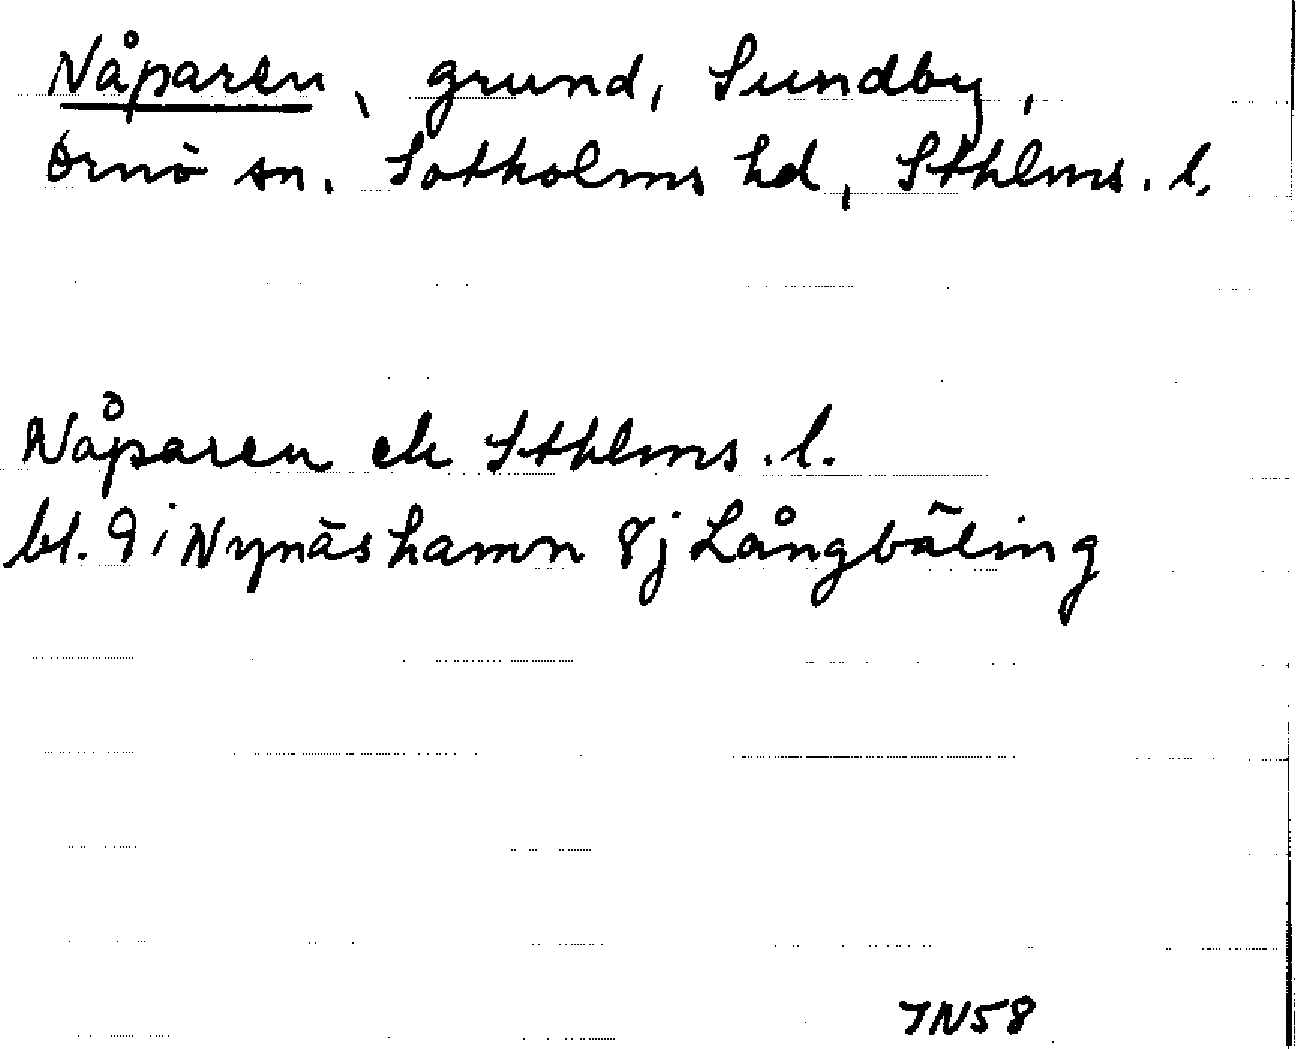 Nåparen, grund, Sundby,
Ornö sn. Sotholms hd, Sthlms. l.
Nåparen ek Sthlms. l.
bl. 9 i Nynäshamn 8j Långbäling
7N58